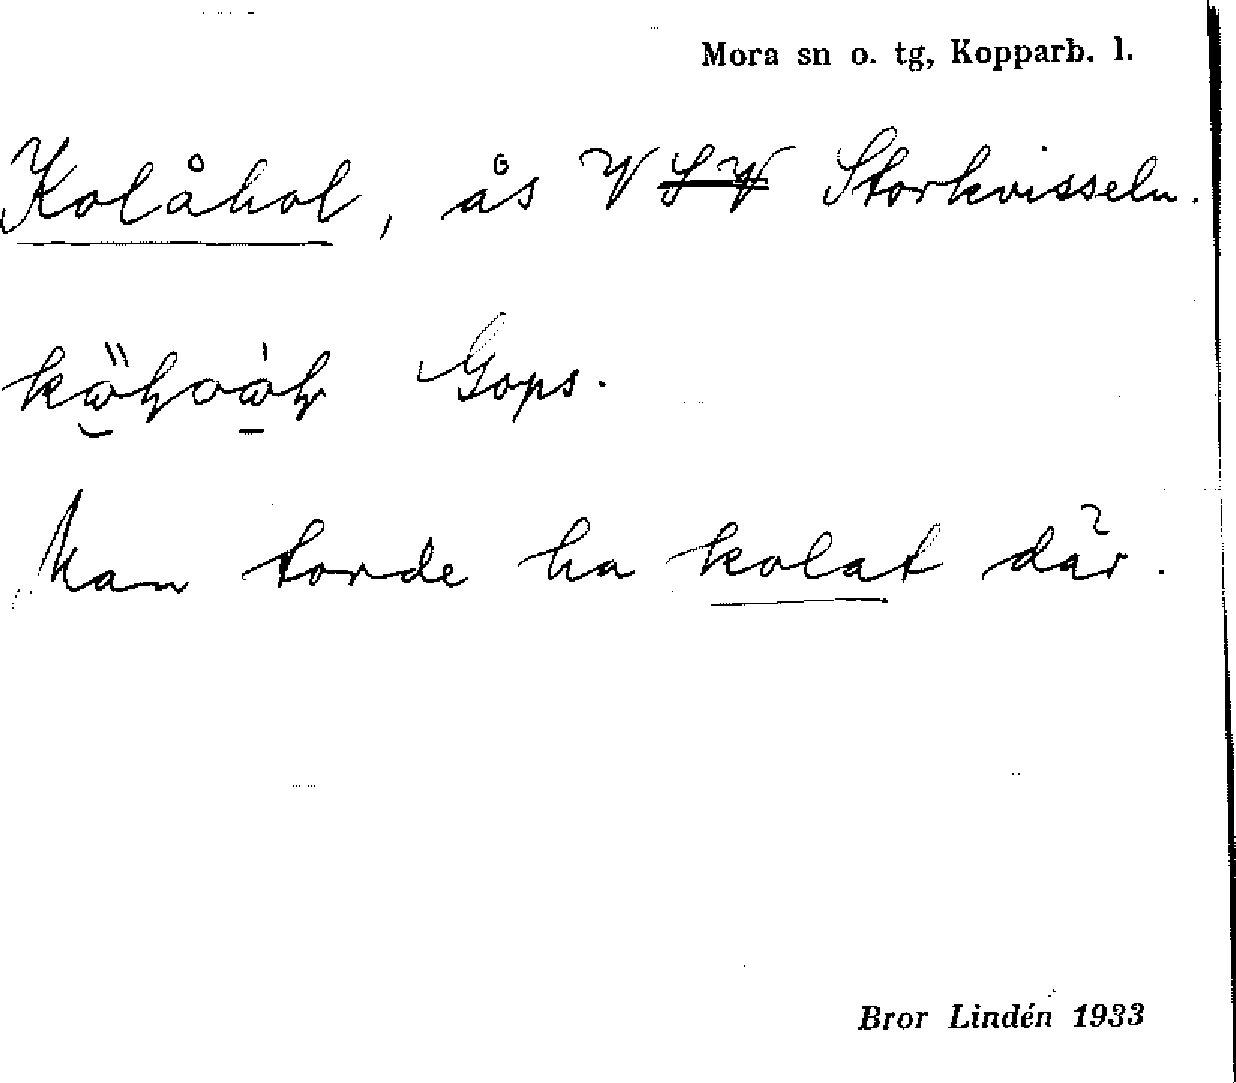 Mora sn o. tg, Kopparb. l.
Kolåhol, ås V Storkvisseln.
Gops.
Man torde ha kolat där.
Bror Lindén 1933